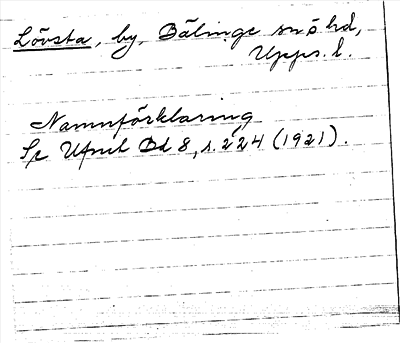 Lövsta, by, Bälinge sn o hd,
Upps. l.
Namnförklaring
Sp Ufnib Bd 8, s. 224 (1921).